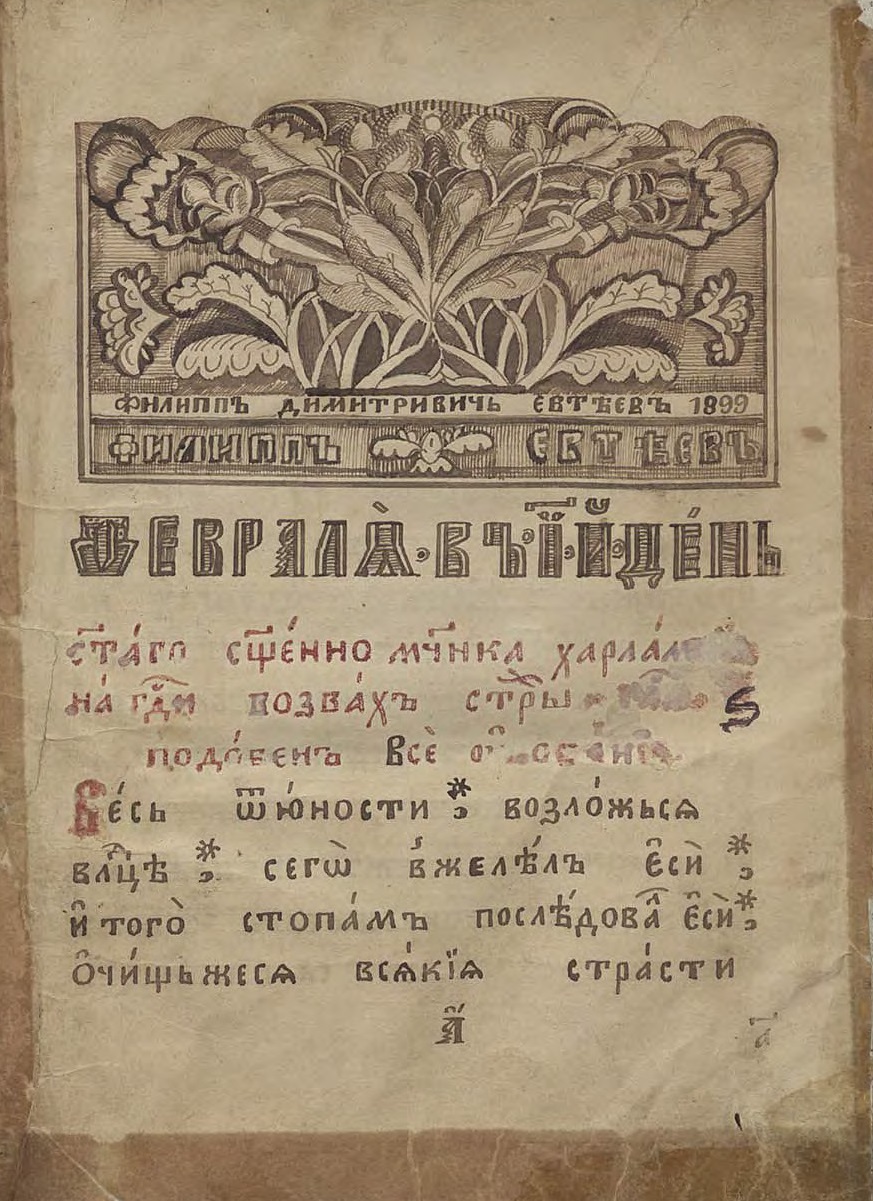 ФИЛИППЪ ДИМИТРИВИЧЬ ЕВТѢЕВЪ 1899
ФИЛИППЪ ЕВТѢЕВЪ
ФЕВРАЛѦ̀·ВЪ·І҃·Й·ДЕ́НЬ
ст҃а́го сщ҃е́нно мч҃нка
на́ гдⷭ҇и возва́хъ
подо́бенъ Всѐ
Ве́сь ѿю́ности ⁎ возло́жьсѧ
влⷣцѣ ⁎ сегѡ̀ вжелѣ́лъ є҆сѝ ⁎
и҆ того̀ стопа́мъ послѣ́довⷧа є҆сѝ ⁎
Ѻ҆чи́щьжесѧ всѧ́кїѧ стра́сти
а҃